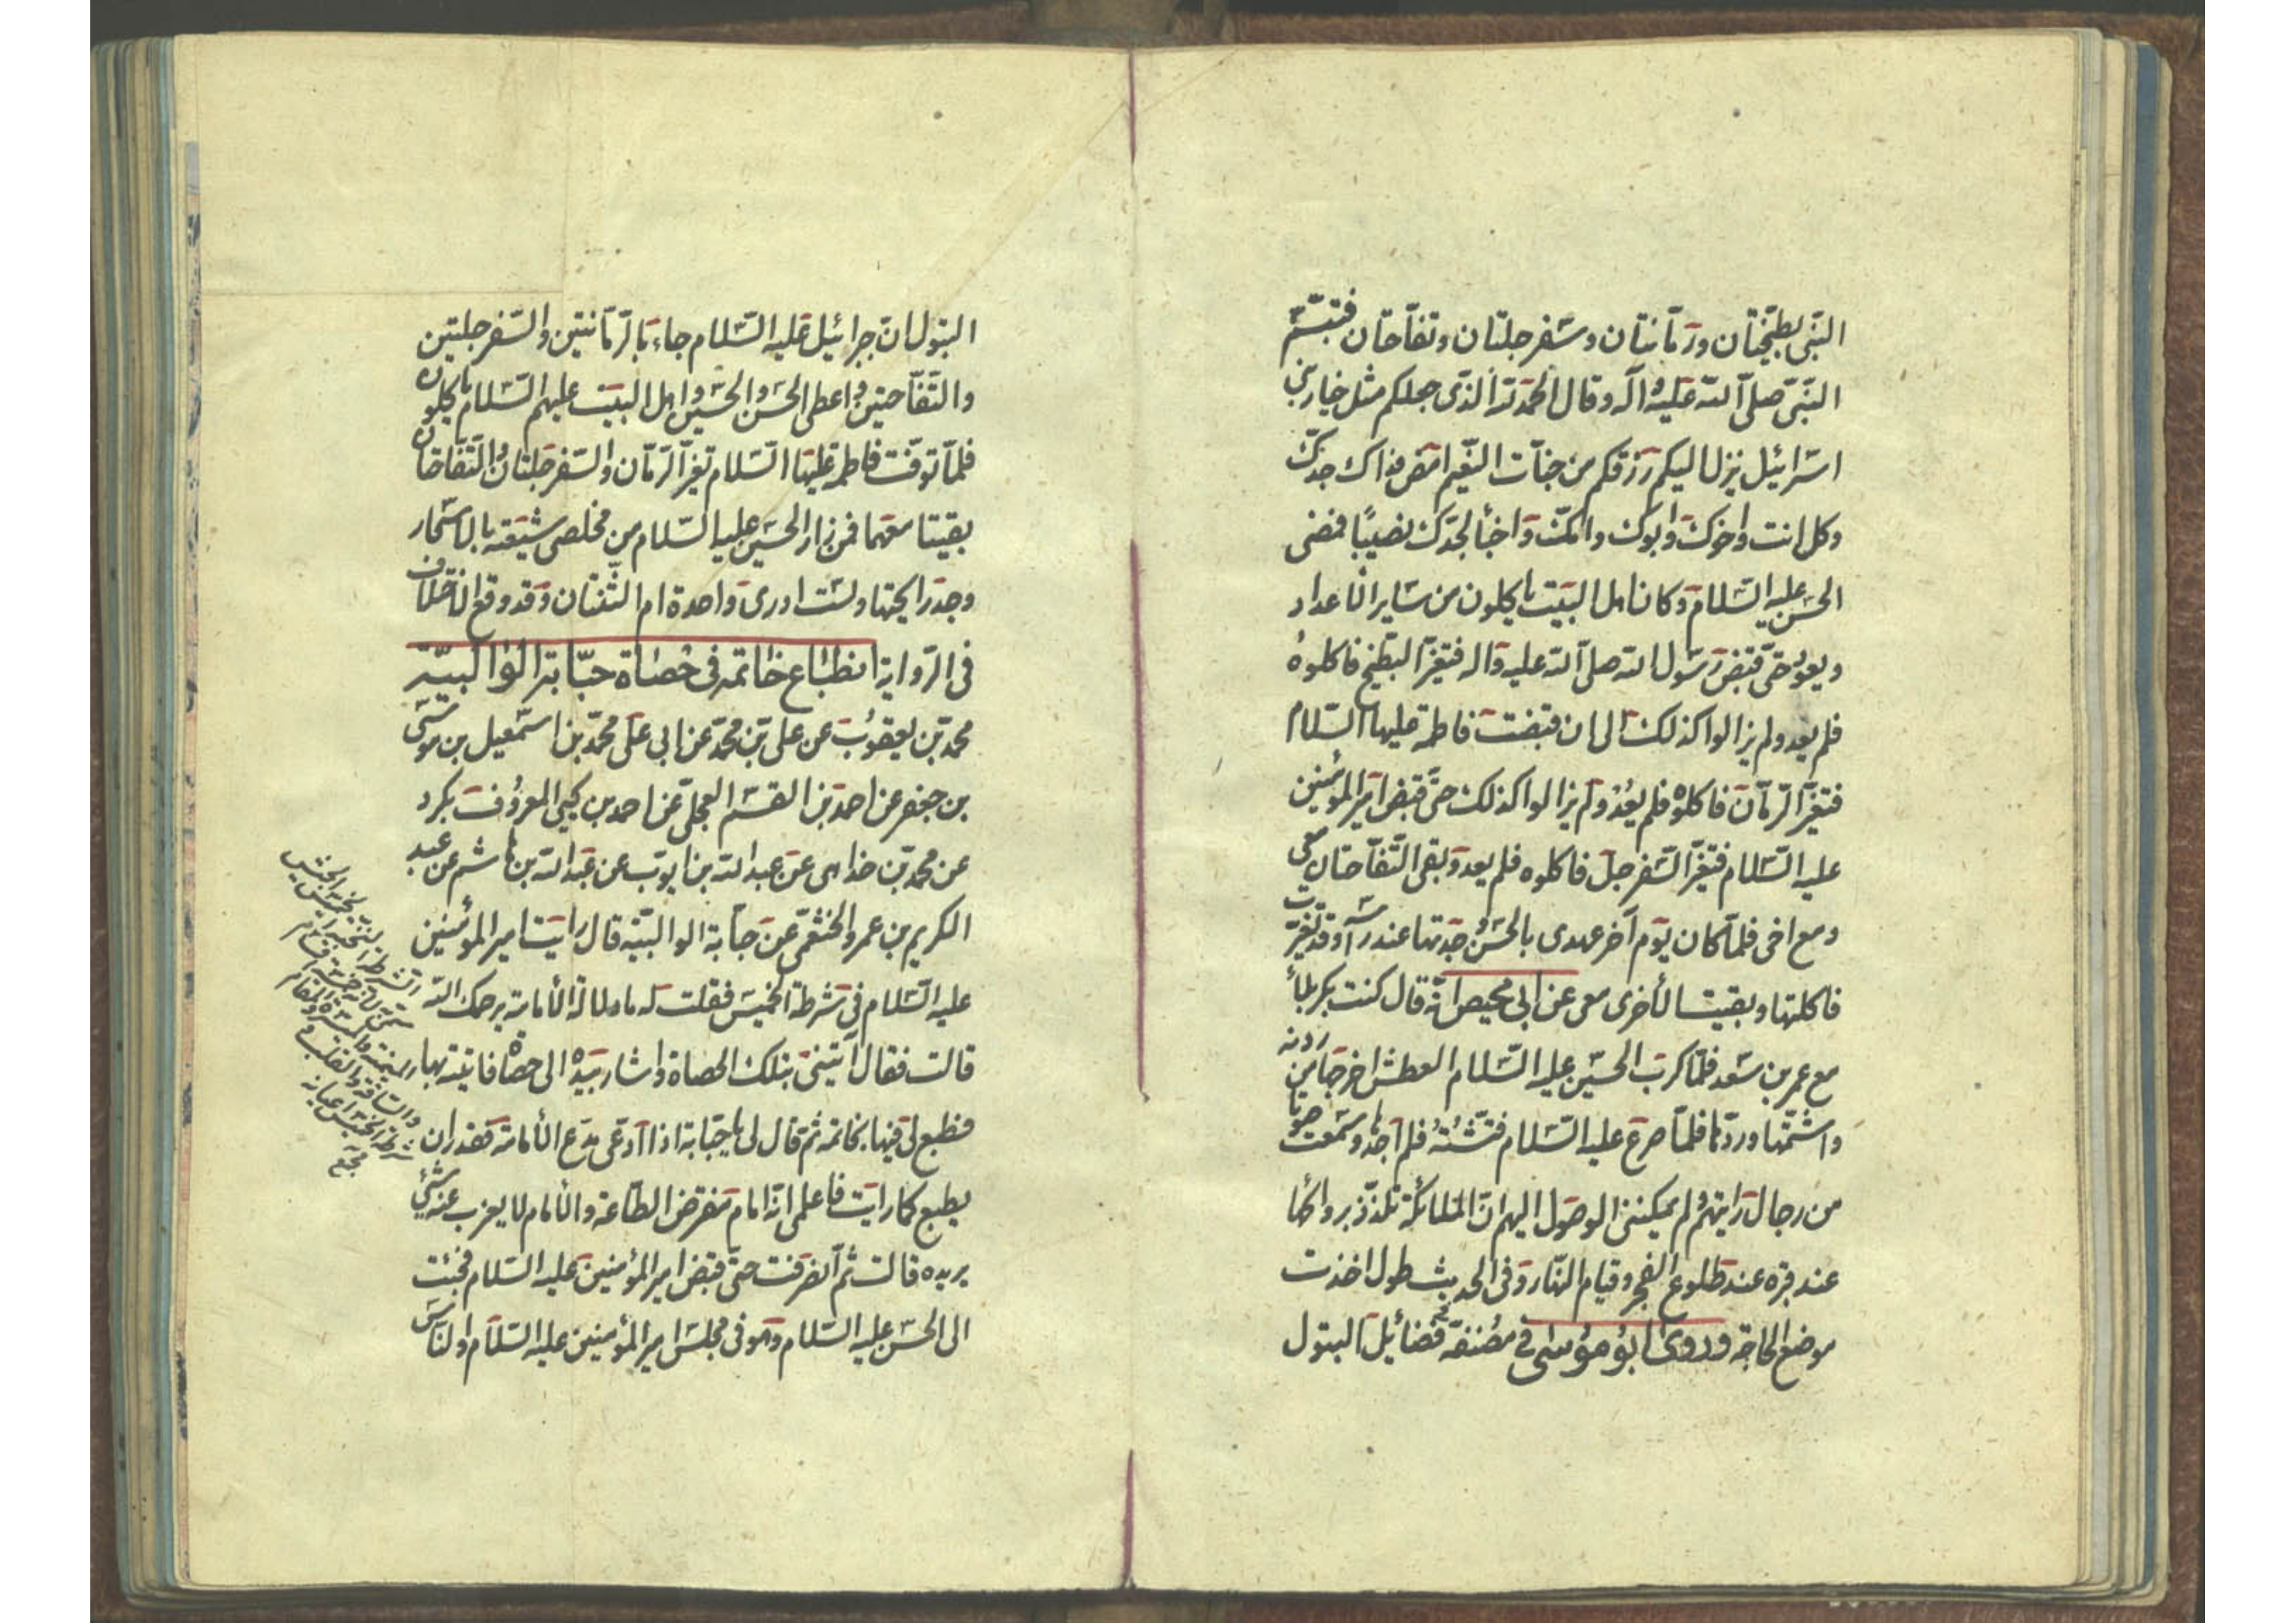 النبی بطیختان ورمانتان وسفرجلتان وتفاحتان فتبسّم
النبیّ صلی الله علیه وآله وقال الحمد لله الذی جعلکم مثل خیار بنی
اسرائیل ینزل الیکم رزقکم من جنات النعیم امض فداک جدک
وکل انت واخوک وابوک وامک واخبأ لجدک نصیبًا فمضی
الحسن علیه السلام وکان اهل البیت یاکلون من سایر الاعداد
ویعود حتی قبض رسول الله صلی الله علیه واله فتغیر البطیخ فاکلوه
فلم یعد ولم یزالوا کذلک الی ان قبضت فاطمة علیها السلام
فتغیر الرمان فاکلوه فلم یعد ولم یزالوا کذلک حتی قبض امیر المؤمنین
علیه السلام فتغیر السفرجل فاکلوه فلم یعد وبقی التفاحتان معی
ومع اخی فلما کان یوم آخر عهدی بالحسن وجدتها عند رأسه وقد تغیرت
فاکلتها وبقیت الأخری معی عن ابی محیص انه قال کنت بکربلأ
مع عمر بن سعد فلما کرب الحسین علیه السلام العطش اخرجها من ردنه
واشتمها وردها فلما صرع علیه السلام فتشته فلم اجدها وسمعت صوتا
من رجال رایتهم ولم یمکننی الوصول الیهم ان الملائکة تلذذ بروائحها
عند قبره عند طلوع الفجر وقیام النهار وفی الحدیث طول اخذت
موضع الحاجة وروی ابو موسی فی مصنفه فضائیل البتول
البتول ان جبرائیل علیه السلام جاء بالرمانتین والسفرجلتین
والتفاحتین واعطی الحسن والحسین واهل البیت علیهم السلام یاکلون
فلما توفت فاطمة علیها السلام تغیر الرمان والسفرجلتان والتفاحتان
بقیتا معهما فمن زار الحسین علیه السلام من مخلصی شیعته بالاسحار
وجد رایحتها ولست ادری واحدة ام الثنتان وقد وقع الاختلاف
فی الروایة انطباع خاتمه فی حصاة حبابة الوالبیة
محمد بن یعقوب عن علی بن محمد عن ابی علی محمد بن اسمعیل بن موسی
بن جعفر عن احمد بن القسم العجلی عن احمد بن یحیی المعروف بکرد
عن محمد بن خداهی عن عبد الله بن ایوب عن عبد الله بن هاشم عن عبد
الکریم بن عمرو الخثعمی عن حبابة الوالبیة قال رایت امیر المؤمنین
علیه السلام فی شرطة الخمیس فقلت له ما دلالة الأمامة یرحمک الله
قالت فقال آیتینی بتلک الحصاة واشار بیده الی حصاة فاتیته بها
فطبع لی فیها بخاتمه ثم قال لی یا حبابة اذا ادعی مدع الأمامة فقدر ان
یطبع کما رایت فاعلمی انه امام مفترض الطاعة والأمام لا یعزب عنه شیئ
یریده قالت ثم انصرفت حتی قبض امیر المؤمنین علیه السلام فجئت
الی الحسن علیه السلام وهو فی مجلس امیر المؤمنین علیه السلام والناس